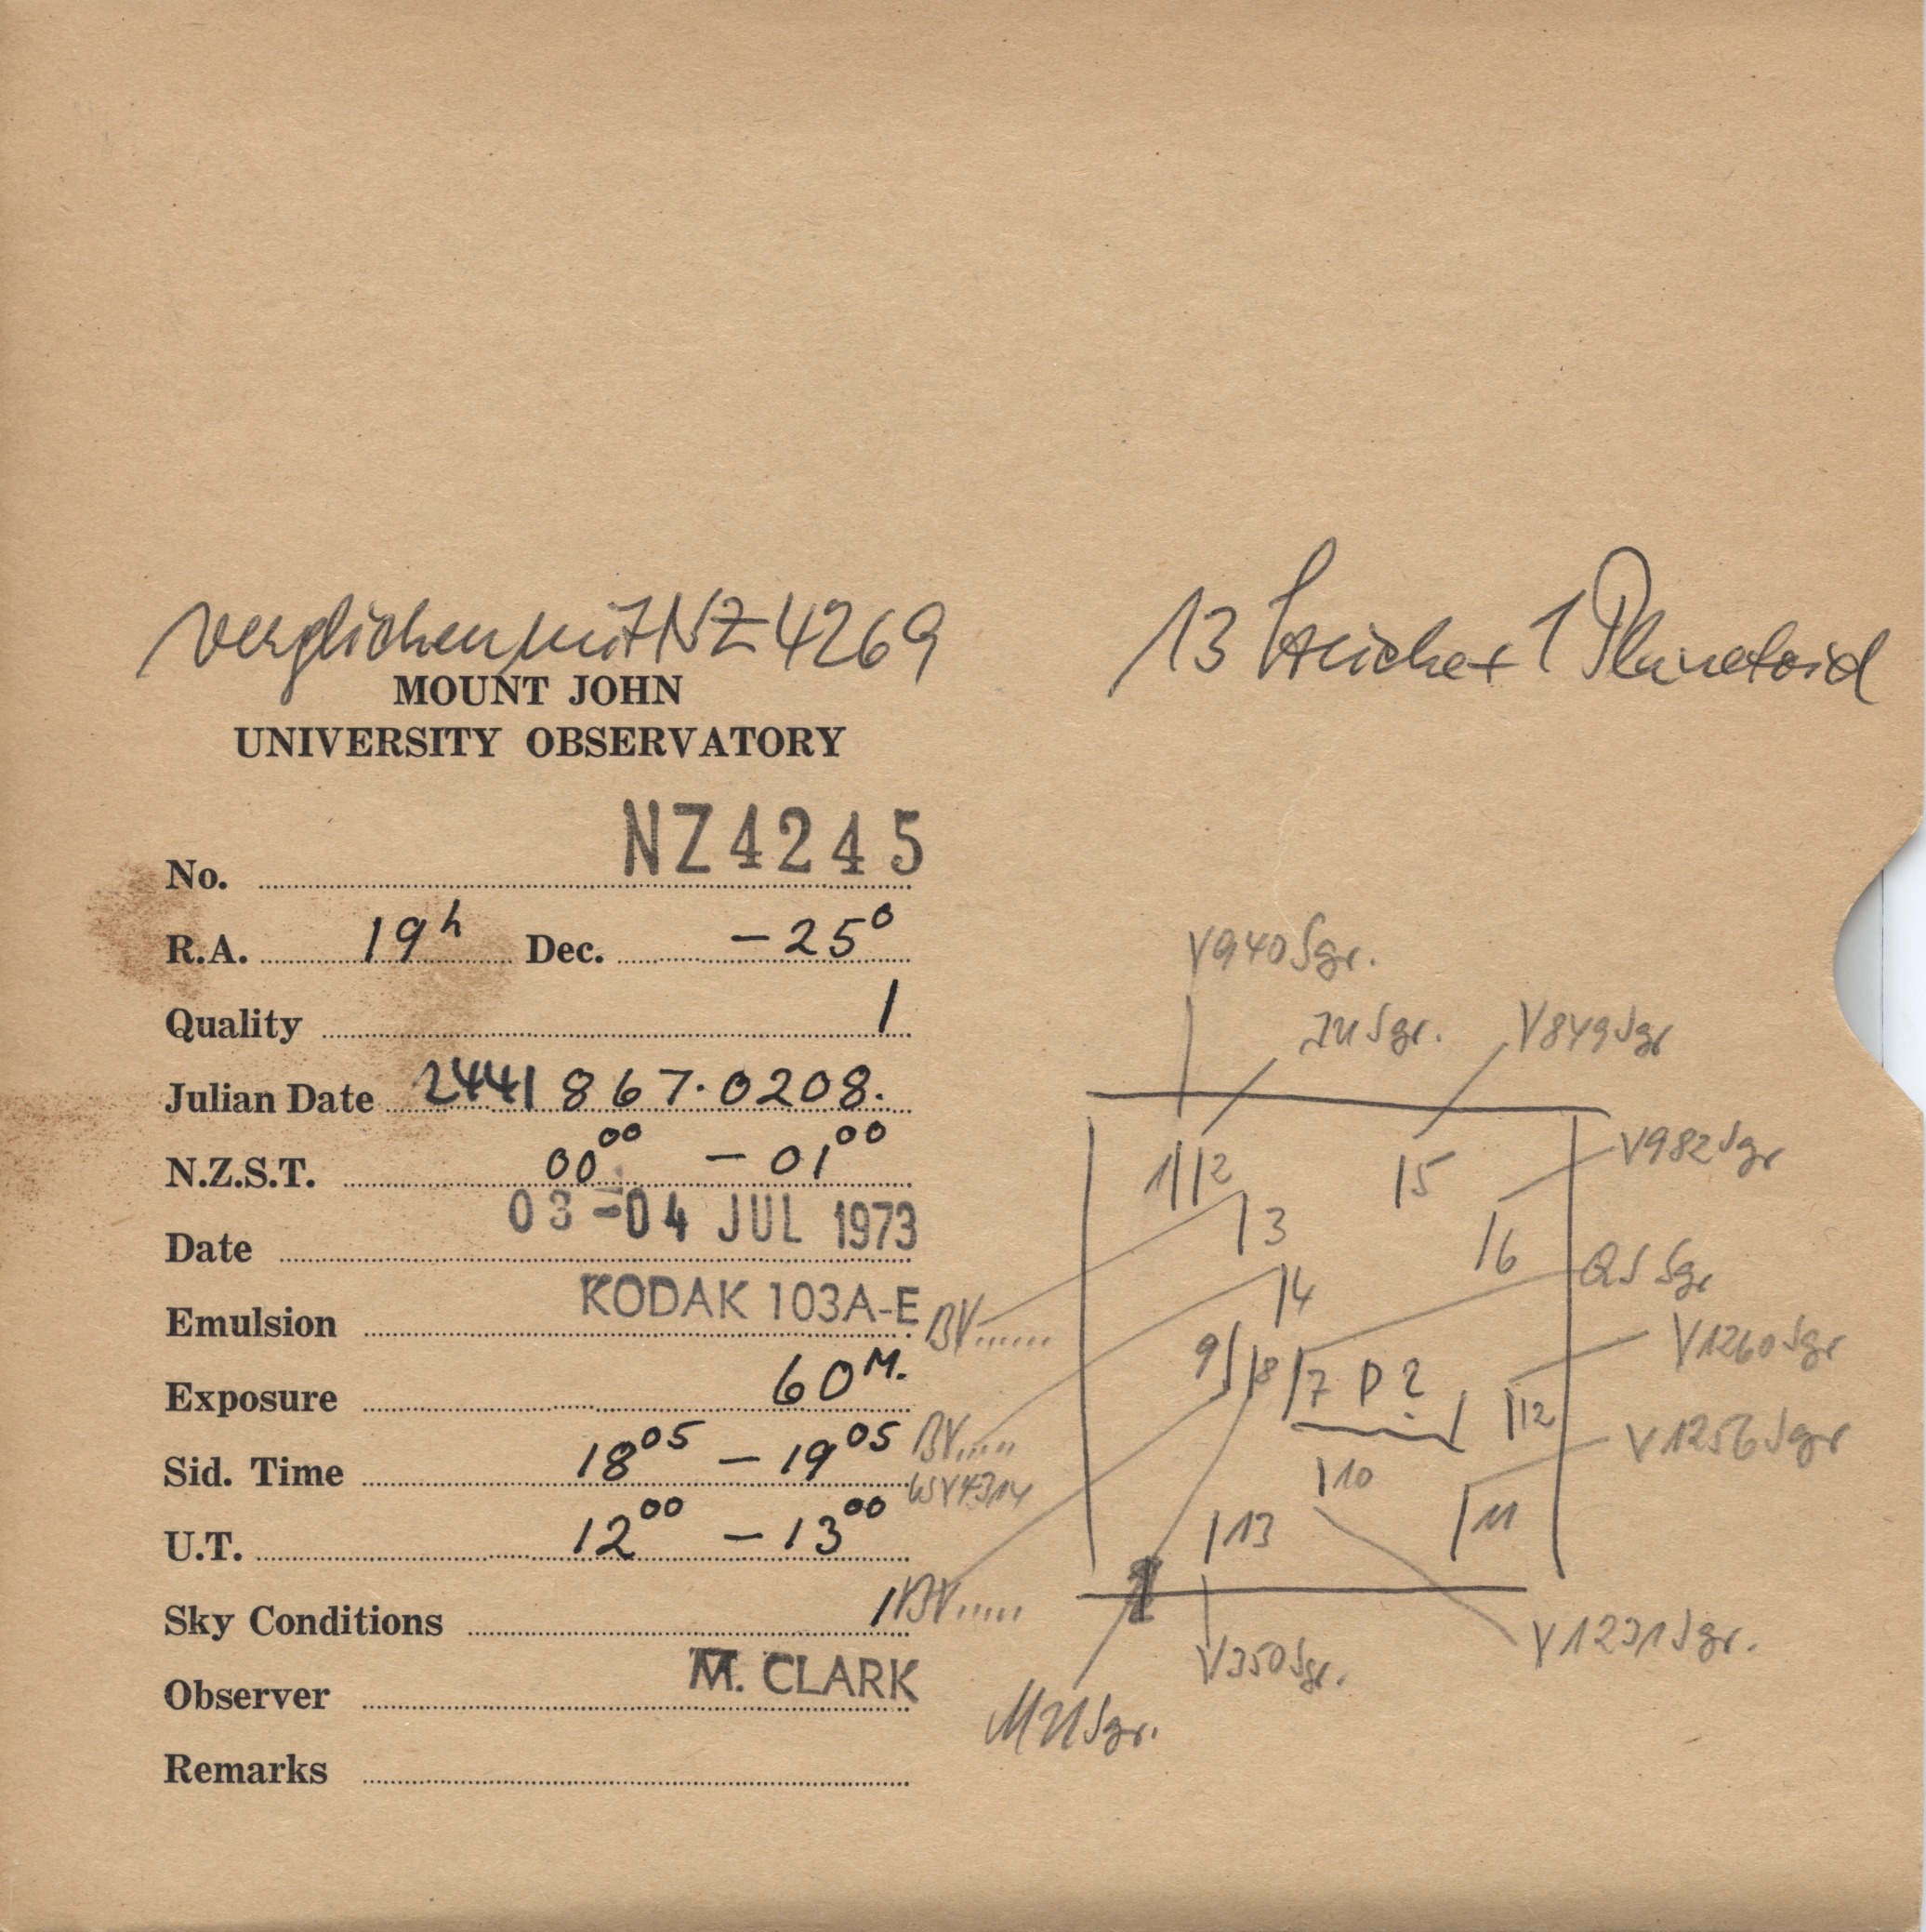 verglichen mit NZ 4269
13 Striche + 1 Planetoid
MOUNT JOHN
UNIVERSITY OBSERVATORY
No. NZ4245
R.A. 19h Dec. -25°
Quality 1
Julian Date 2441 867.0208.
N.Z.S.T. 00 00 - 01 00
Date 03-04 JUL 1973
Emulsion KODAK 103A-E
Exposure 60M.
Sid. Time 18 05 - 19 05
U.T. 12 00 - 13 00
Sky Conditions 1
Observer M. CLARK
Remarks
V940 Sgr.
Sgr.
V849 Sgr
1 2
5
V982 Sgr
3
6
QS Sgr
BV......
4
V1260 Sgr
9 8 7 P?
12
BV.....
V1256 Sgr
10
11
13
BV.....
V350 Sgr.
V1231 Sgr.
Sgr.